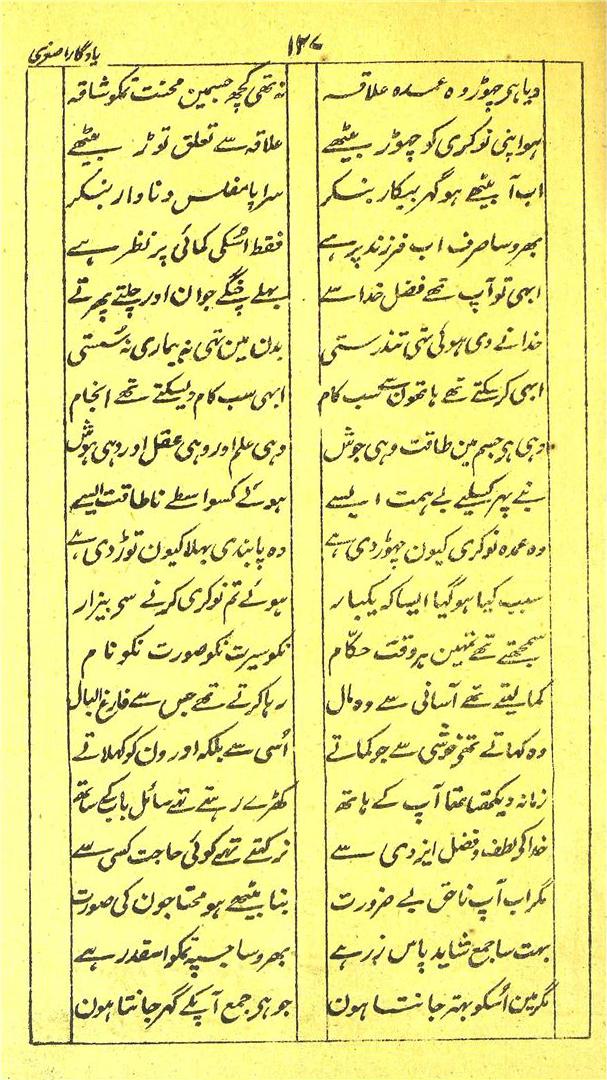 یادگار اصغری ۱۲۷
دیا ہی چھوڑ وہ عمدہ علاقہ نہ تھی کچھ جسمین محنت تمکو شاقہ
ہوا پنی نوکری کو چھوڑ بیٹھے علاقہ سے تعلق توڑ بیٹھے
اب آ بیٹھے ہو گھر بیکار بنکر سراپا مفلس و نادار بنکر
بھروسا صرف اب فرزند پر ہے فقط اُسکی کمائی پر نظر ہے
ابہی تو آپ تھے فضل خدا سے بہلے چنگے جوان اور چلتے پھرتے
خدا نے دی ہوئی تہی تندرستی بدن مین تہی نہ بیماری نہ سُستی
ابہی کر سکتے تھے ہاتھون سے سب کام ابہی سب کام دیسکتے تھے انجام
وہی ہی جسم مین طاقت وہی جوش وہی علم اور وہی عقل اور وہی ہوش
بنے پہر کسلیے بے ہمت ایسے ہوئے کسواسطے ناطاقت ایسے
وہ عمدہ نوکری کیون چہوڑ دی ہے وہ پابندی بہلا کیون توڑ دی ہے
سبب کیا ہو گیا ایسا کہ یکبار ہوئے تم نوکری کرنے سے بیزار
سمجھتے تھے تمہین ہر وقت حکّام نکو سیرت نکو صورت نکو نام
کما لیتے تھے آسانی سے وہ مال رہا کرتے تھے جس سے فارغ البال
وہ کہاتے تھے خوشی سے جو کماتے اُسی سے بلکہ اورون کو کہلاتے
زمانہ دیکھتا تھا آپ کے ہاتھ کھڑے رہتے تھے سائل باپ کے ساتھ
خدا کی لطف و فضل ایزدی سے نرکھتے تھے کوئی حاجت کسی سے
مگر اب آپ ناحق بے ضرورت بنا بیٹھے ہو محتاجون کی صورت
بہت سا جمع شاید پاس زر ہے بھروسا جسپہ تمکو اسقدر ہے
مگر مین اُسکو بہتر جانتا ہون جو ہی جمع آپکے گھر جانتا ہون